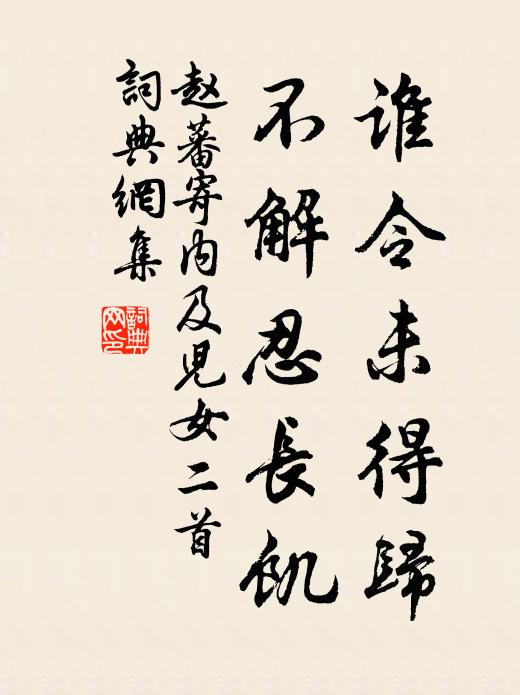 谁令未得歸
不解忍長飢
赵蕃寄内及児女二首
詞典網集
詞典
网印